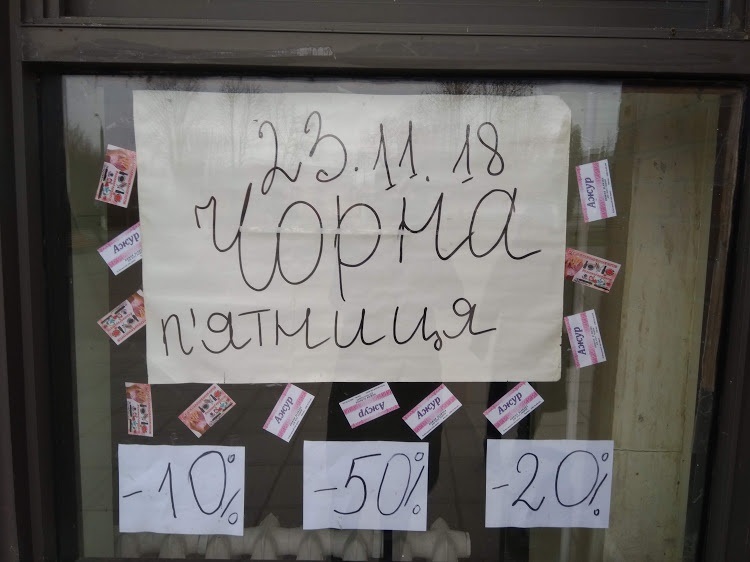 23.11.18
Чорна
п'ятниця
Ажур
Ажур
Ажур
Ажур
Ажур
Ажур
Ажур
-10%
-50%
-20%